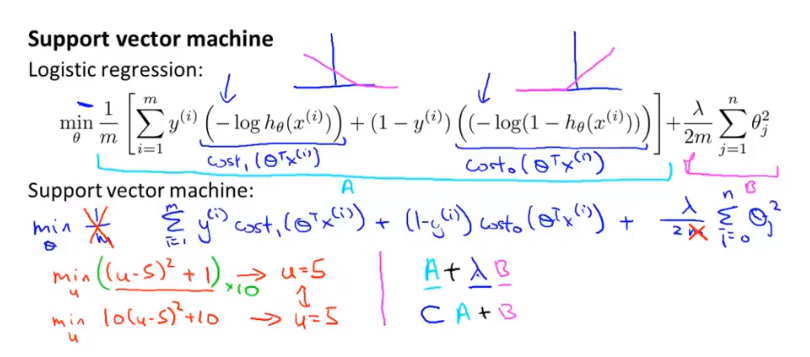 Support vector machine
Logistic regression:
min_θ 1/m [ ∑_{i=1}^{m} y^{(i)} (−log h_θ(x^{(i)})) + (1 − y^{(i)}) ((−log(1 − h_θ(x^{(i)}))) ] + λ/2m ∑_{j=1}^{n} θ_j^2
cost_1(θ^T x^{(i)}) cost_0(θ^T x^{(i)})
A B
Support vector machine:
min_θ 1/m ∑_{i=1}^{m} y^{(i)} cost_1(θ^T x^{(i)}) + (1-y^{(i)}) cost_0(θ^T x^{(i)}) + λ/2m ∑_{i=0}^{n} θ_j^2
min_u ((u-5)^2 + 1) ×10 → u=5 A + λ B
↕
min_u 10(u-5)^2 + 10 → u=5 C A + B